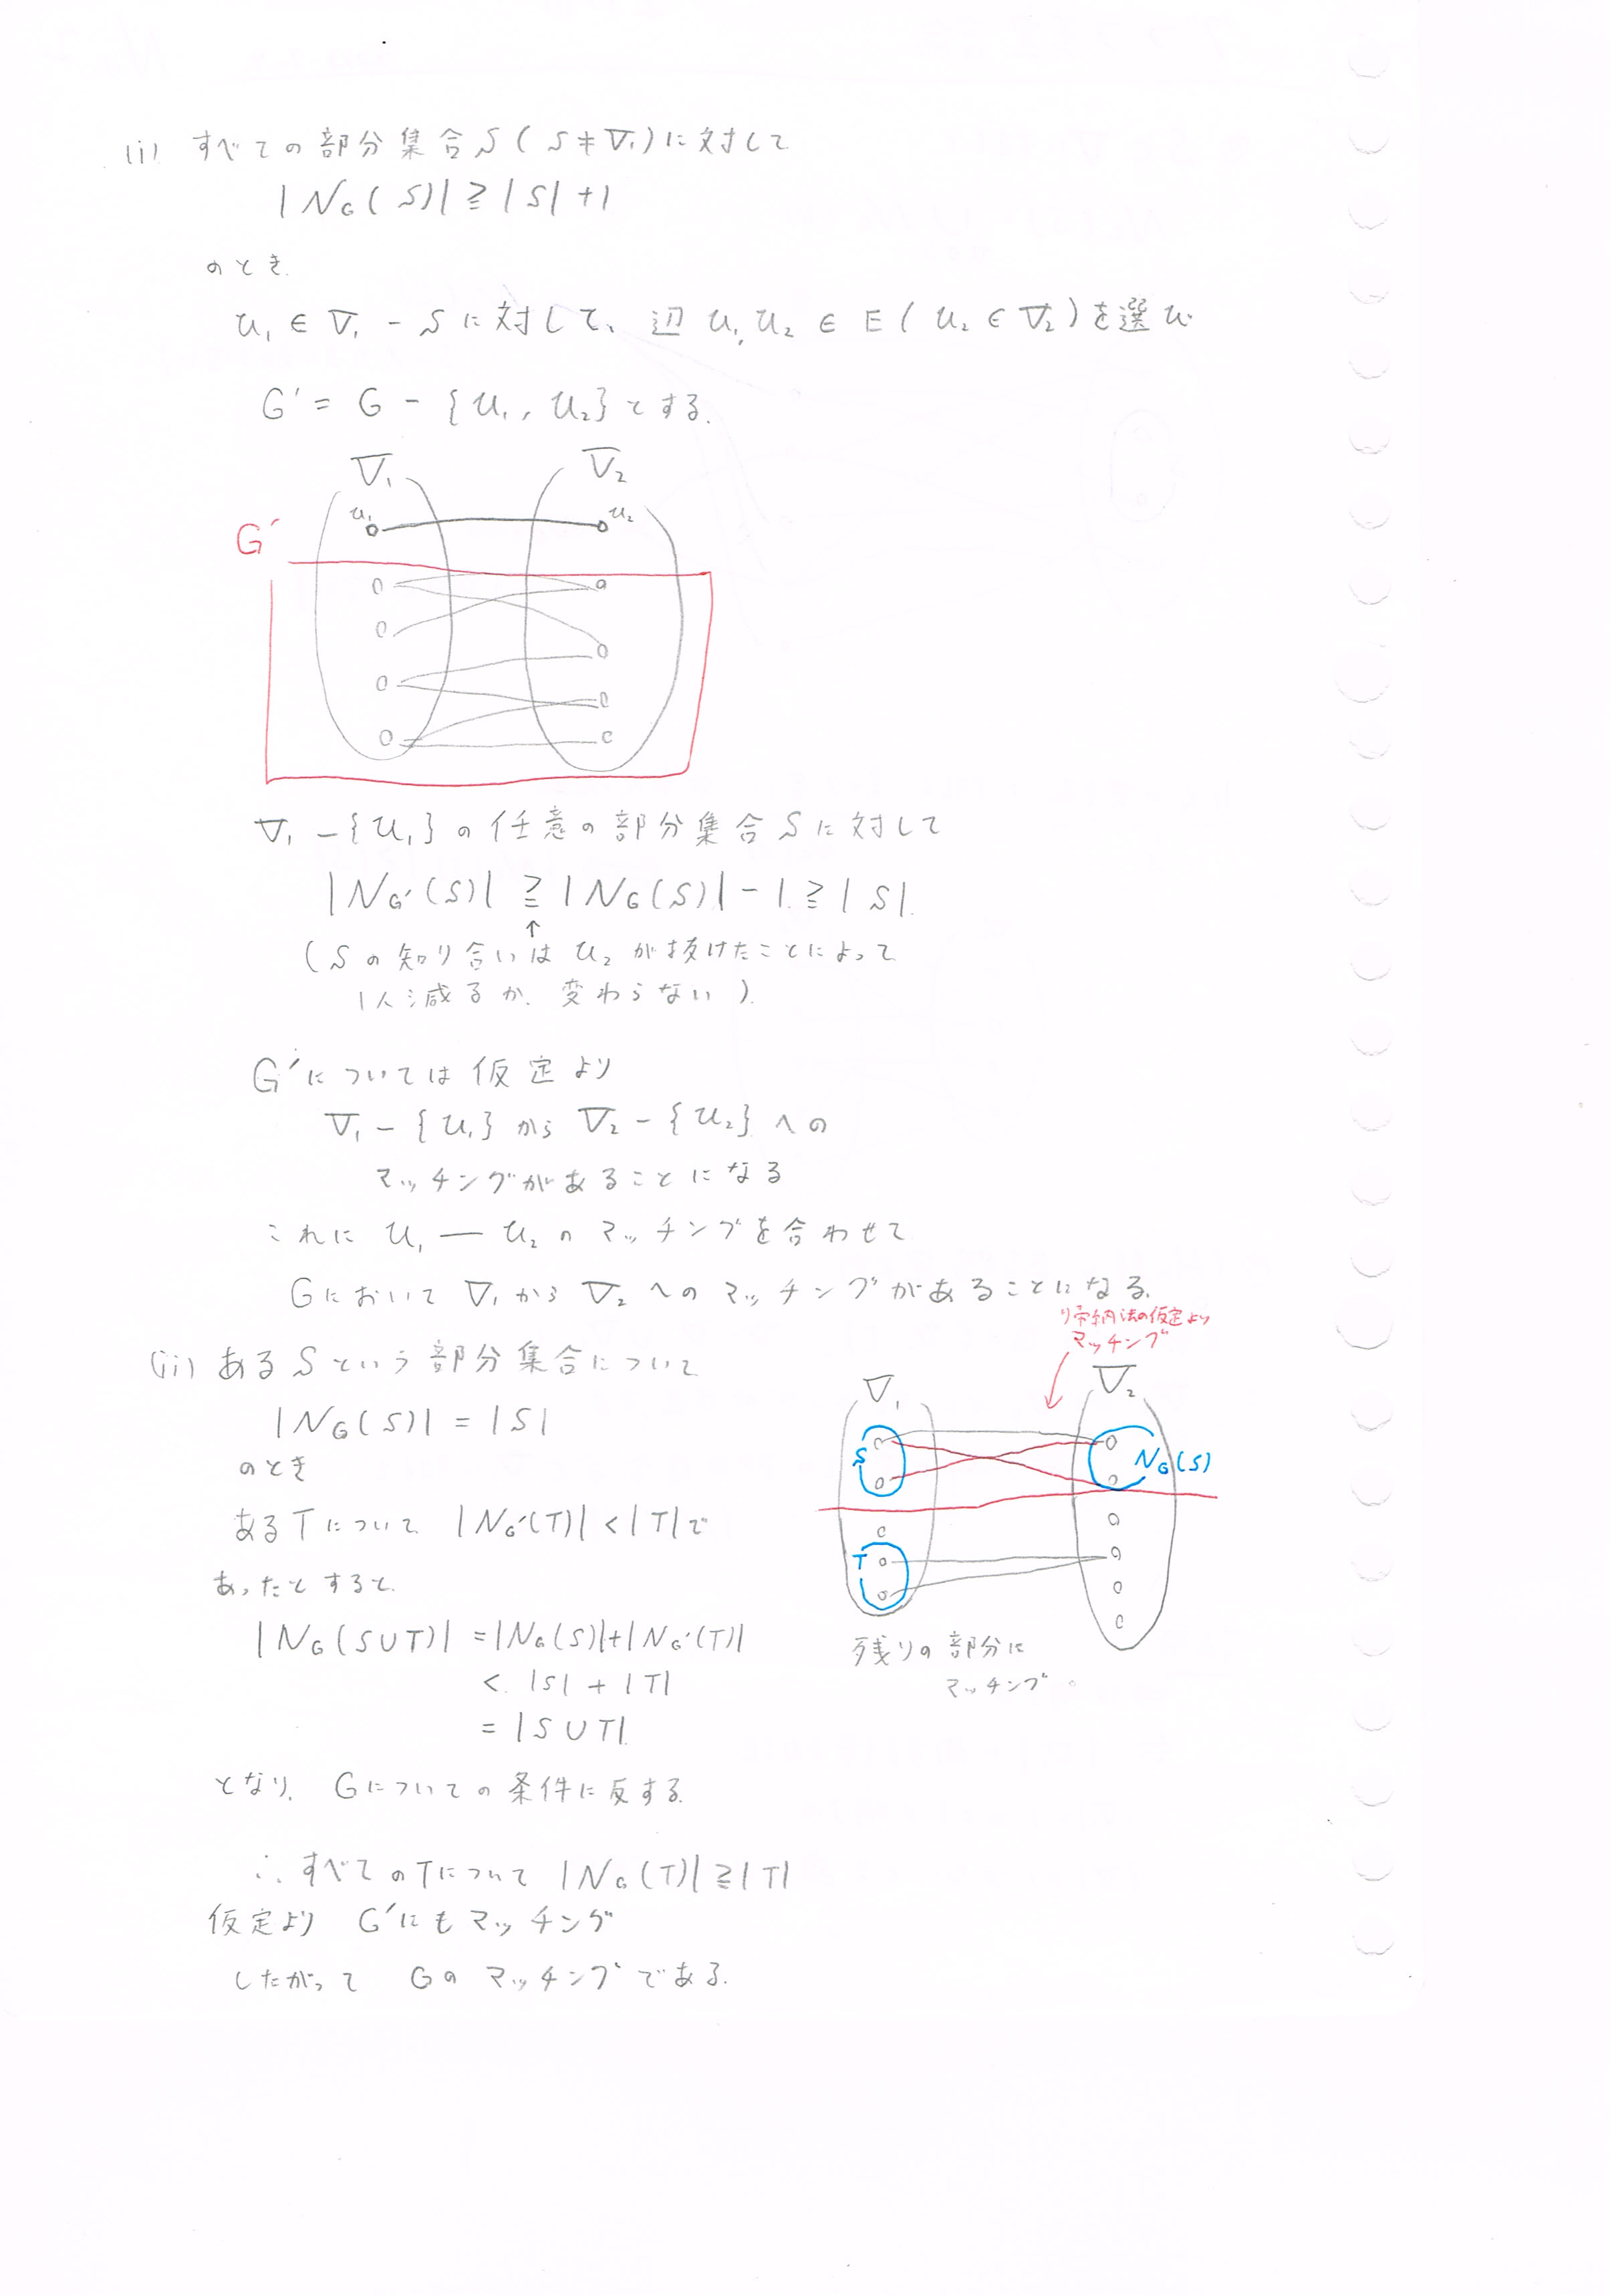 (i) すべての部分集合S(S≠V₁)に対して
|N_G(S)|≧|S|+1
のとき.
u₁∈V₁-Sに対して、辺u₁u₂∈E(u₂∈V₂)を選び
G'=G-{u₁,u₂}とする.
V₁ V₂
u₁ u₂
G'
V₁-{u₁}の任意の部分集合Sに対して
|N_G'(S)|≧|N_G(S)|-1≧|S|.
↑
(Sの知り合いはu₂が抜けたことによって
1人減るか、変わらない).
G'については仮定より
V₁-{u₁}からV₂-{u₂}への
マッチングがあることになる
これにu₁―u₂のマッチングを合わせて
GにおいてV₁からV₂へのマッチングがあることになる.
(ii) あるSという部分集合について
|N_G(S)|=|S|
のとき
あるTについて |N_G'(T)|<|T|で
あったとすると.
|N_G(S∪T)|=|N_G(S)|+|N_G'(T)|
<|S|+|T|
=|S∪T|.
となり. Gについての条件に反する.
∴すべてのTについて|N_G(T)|≧|T|
仮定より G'にもマッチング
したがって Gのマッチングである.
帰納法の仮定より
マッチング
V₁ V₂
S N_G(S)
T
残りの部分に
マッチング。